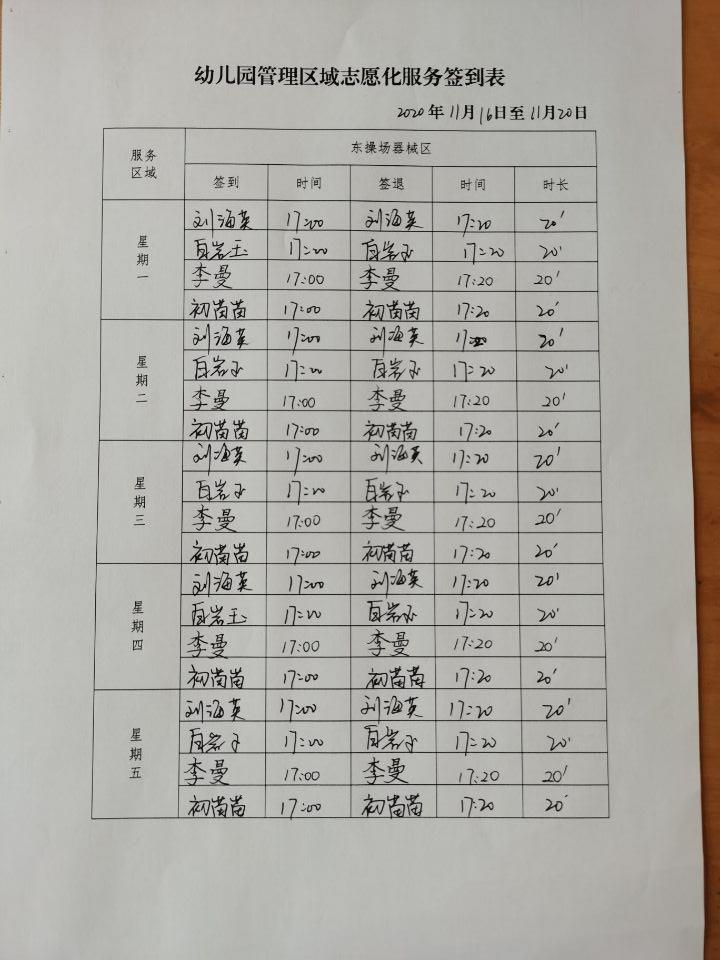 幼儿园管理区域志愿化服务签到表
2020年11月16日至11月20日
服务区域 东操场器械区
签到 时间 签退 时间 时长
星期一
刘海英 17:00 刘海英 17:20 20'
白岩玉 17:00 白岩玉 17:20 20'
李曼 17:00 李曼 17:20 20'
初苗苗 17:00 初苗苗 17:20 20'
星期二
刘海英 17:00 刘海英 17:20 20'
白岩玉 17:00 白岩玉 17:20 20'
李曼 17:00 李曼 17:20 20'
初苗苗 17:00 初苗苗 17:20 20'
星期三
刘海英 17:00 刘海英 17:20 20'
白岩玉 17:00 白岩玉 17:20 20'
李曼 17:00 李曼 17:20 20'
初苗苗 17:00 初苗苗 17:20 20'
星期四
刘海英 17:00 刘海英 17:20 20'
白岩玉 17:00 白岩玉 17:20 20'
李曼 17:00 李曼 17:20 20'
初苗苗 17:00 初苗苗 17:20 20'
星期五
刘海英 17:00 刘海英 17:20 20'
白岩玉 17:00 白岩玉 17:20 20'
李曼 17:00 李曼 17:20 20'
初苗苗 17:00 初苗苗 17:20 20'